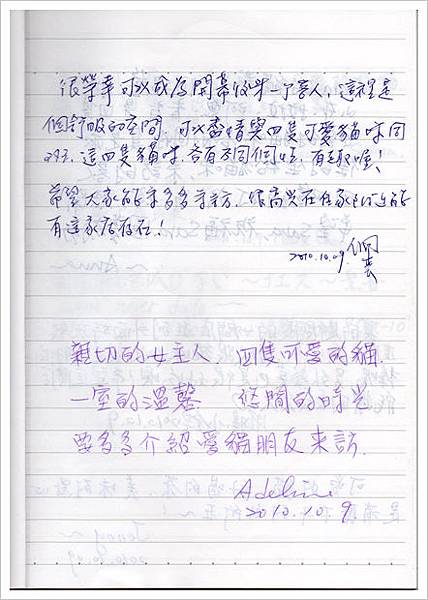 很榮幸可以成為開幕後第一個客人, 這裡是
個舒服的空間, 可以盡情與四隻可愛貓咪同
這四隻貓咪各有不同個性, 有趣喔!
希望大家能多多來訪, 很高兴在住家附近能
有這家店存在!
2010.10.09
親切的女主人 四隻可愛的貓.
一室的溫馨 悠閒的時光
要多多介紹愛貓朋友來訪.
Adeline
2010.10.9